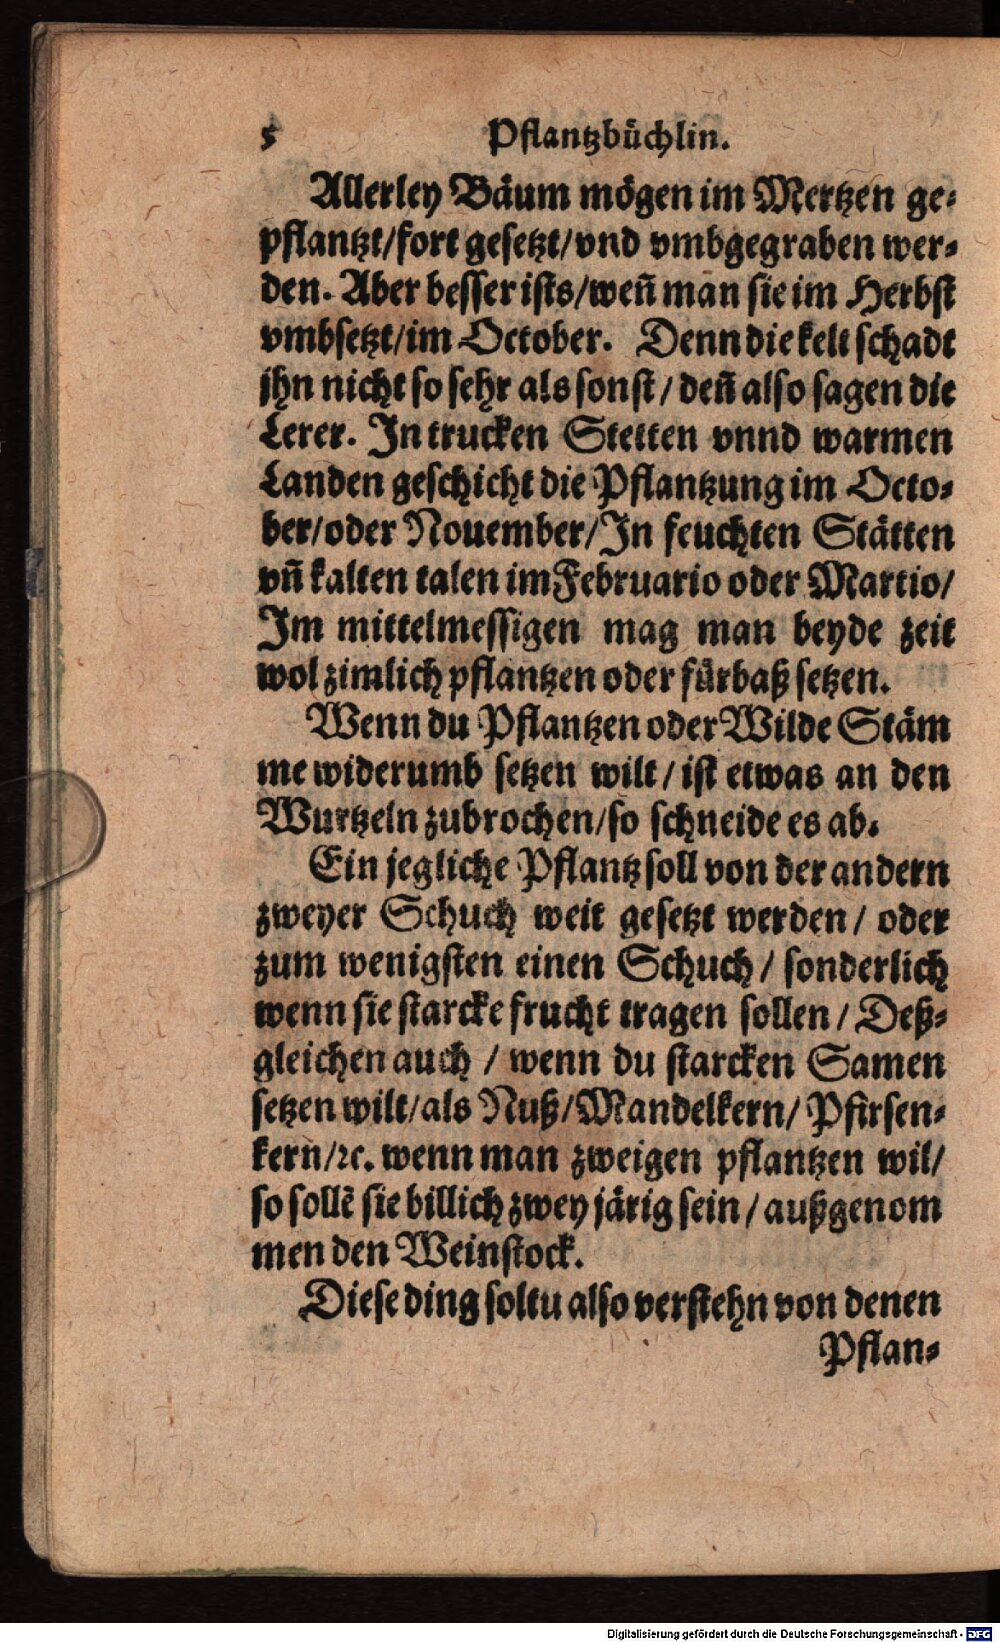 5 Pflantzbüchlin.
Allerley Bäum mögen im Mertzen ge-
pflantzt/fort gesetzt/vnd vmbgegraben wer-
den. Aber besser ists/weñ man sie im Herbst
vmbsetzt/im October. Denn die kelt schadt
jhn nicht so sehr als sonst/deñ also sagen die
Lerer. In trucken Stetten vnnd warmen
Landen geschicht die Pflantzung im Octo-
ber/oder Nouember/In feuchten Stätten
vñ kalten talen im Februario oder Martio/
Im mittelmessigen mag man beyde zeit
wol zimlich pflantzen oder fürbaß setzen.
Wenn du Pflantzen oder Wilde Stäm
me widerumb setzen wilt/ist etwas an den
Wurtzeln zubrochen/so schneide es ab.
Ein jegliche Pflantz soll von der andern
zweyer Schuch weit gesetzt werden/oder
zum wenigsten einen Schuch/sonderlich
wenn sie starcke frucht tragen sollen/Deß-
gleichen auch/wenn du starcken Samen
setzen wilt/als Nuß/Mandelkern/Pfirsen-
kern/ꝛc. wenn man zweigen pflantzen wil/
so sollẽ sie billich zwey järig sein/außgenom
men den Weinstock.
Diese ding soltu also verstehn von denen
Pflan-
Digitalisierung gefördert durch die Deutsche Forschungsgemeinschaft - DFG